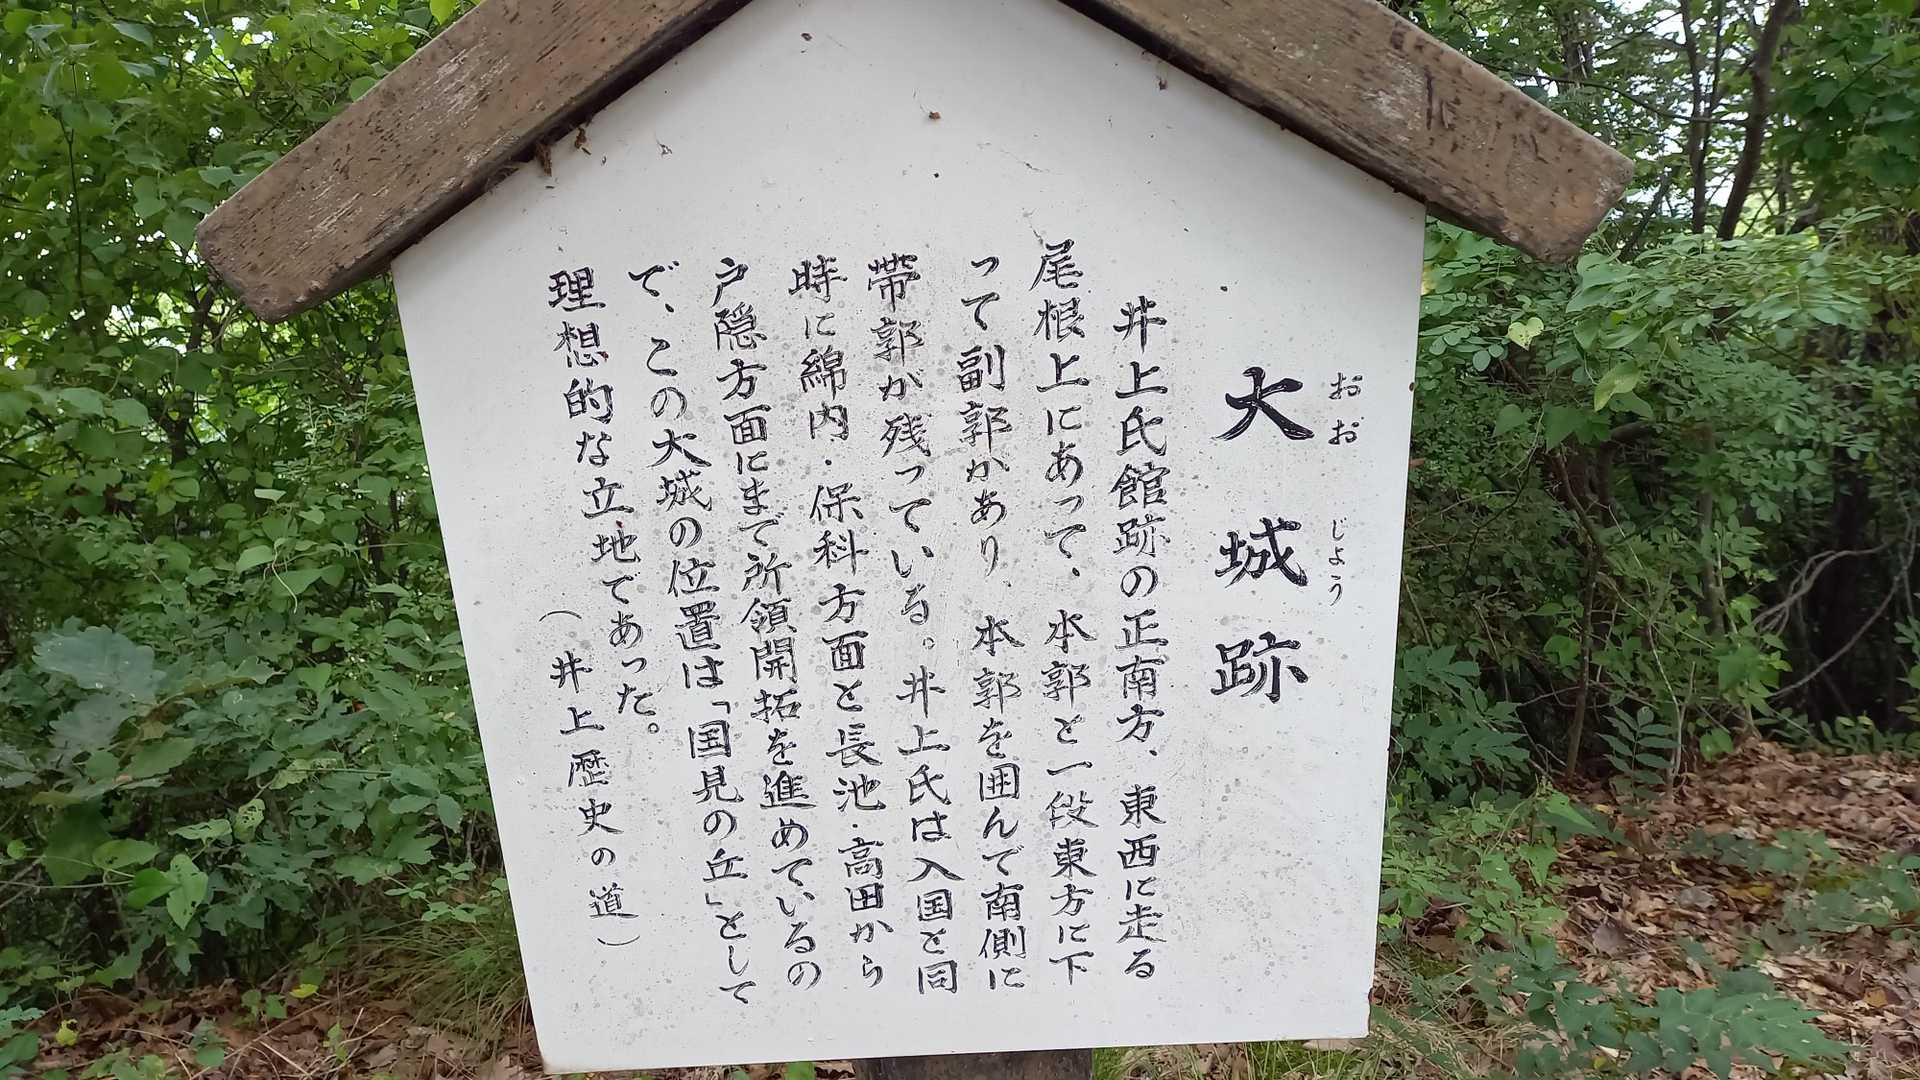 大城跡
おおじょう
井上氏館跡の正南方、東西に走る
尾根上にあって、本郭と一段東方に下
って副郭があり、本郭を囲んで南側に
帯郭が残っている。井上氏は入国と同
時に綿内・保科方面と長池・高田から
戸隠方面にまで所領開拓を進めているの
で、この大城の位置は「国見の丘」として
理想的な立地であった。
(井上歴史の道)